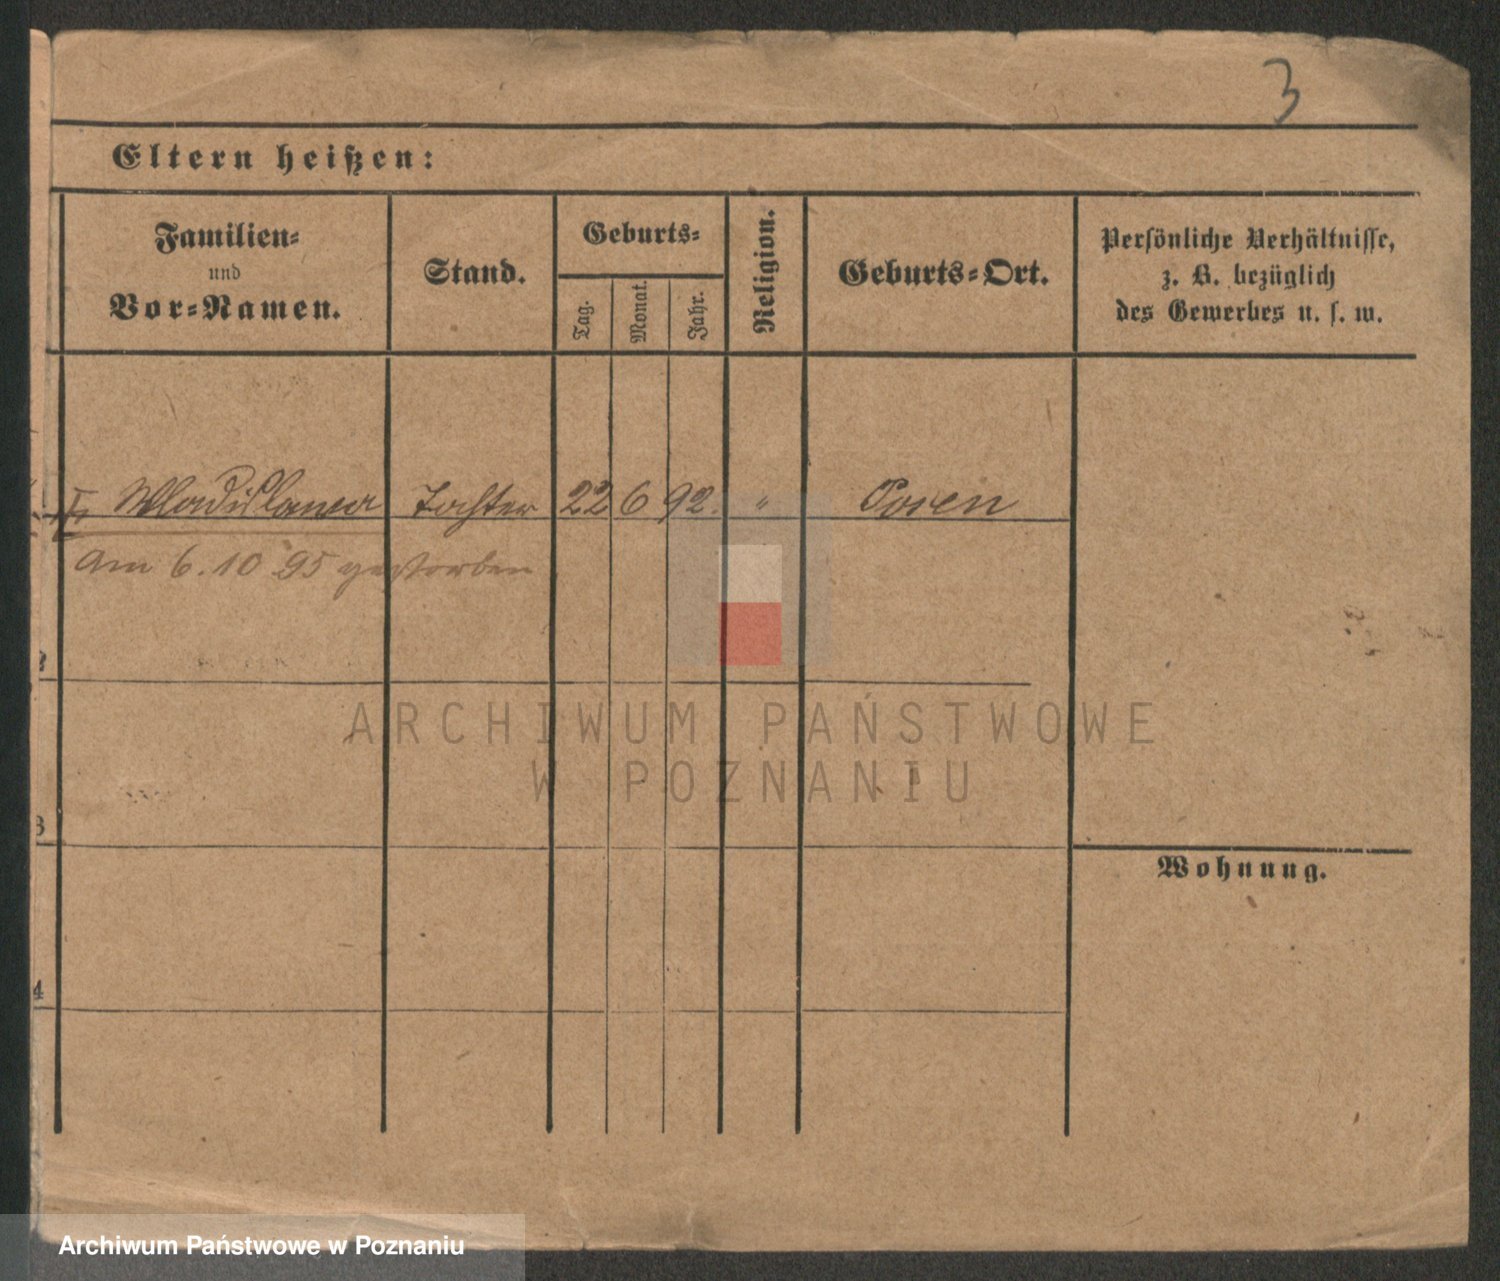 3
Eltern heißen:
Familien=
und
Vor=Namen.
Stand.
Geburts=
Tag.
Monat.
Jahr.
Religion.
Geburts=Ort.
Persönliche Verhältnisse,
z. B. bezüglich
des Gewerbes u. s. w.
Wladislawa Tochter 22 6 92. " Posen
Am 6. 10 95 gestorben
2
3
Wohnung.
4
ARCHIWUM PAŃSTWOWE
W POZNANIU
Archiwum Państwowe w Poznaniu